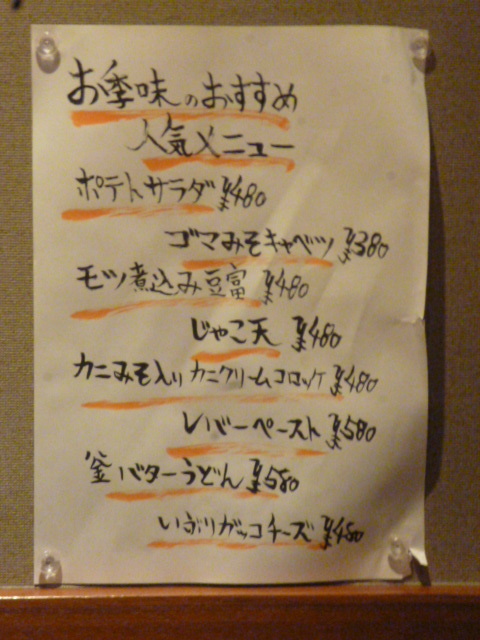 お季味のおすすめ
人気メニュー
ポテトサラダ ¥480
ゴマみそキャベツ ¥380
モツ煮込み豆富 ¥480
じゃこ天 ¥480
カニみそ入り カニクリームコロッケ ¥480
レバーペースト ¥580
釜バターうどん ¥580
いぶりガッコチーズ ¥480